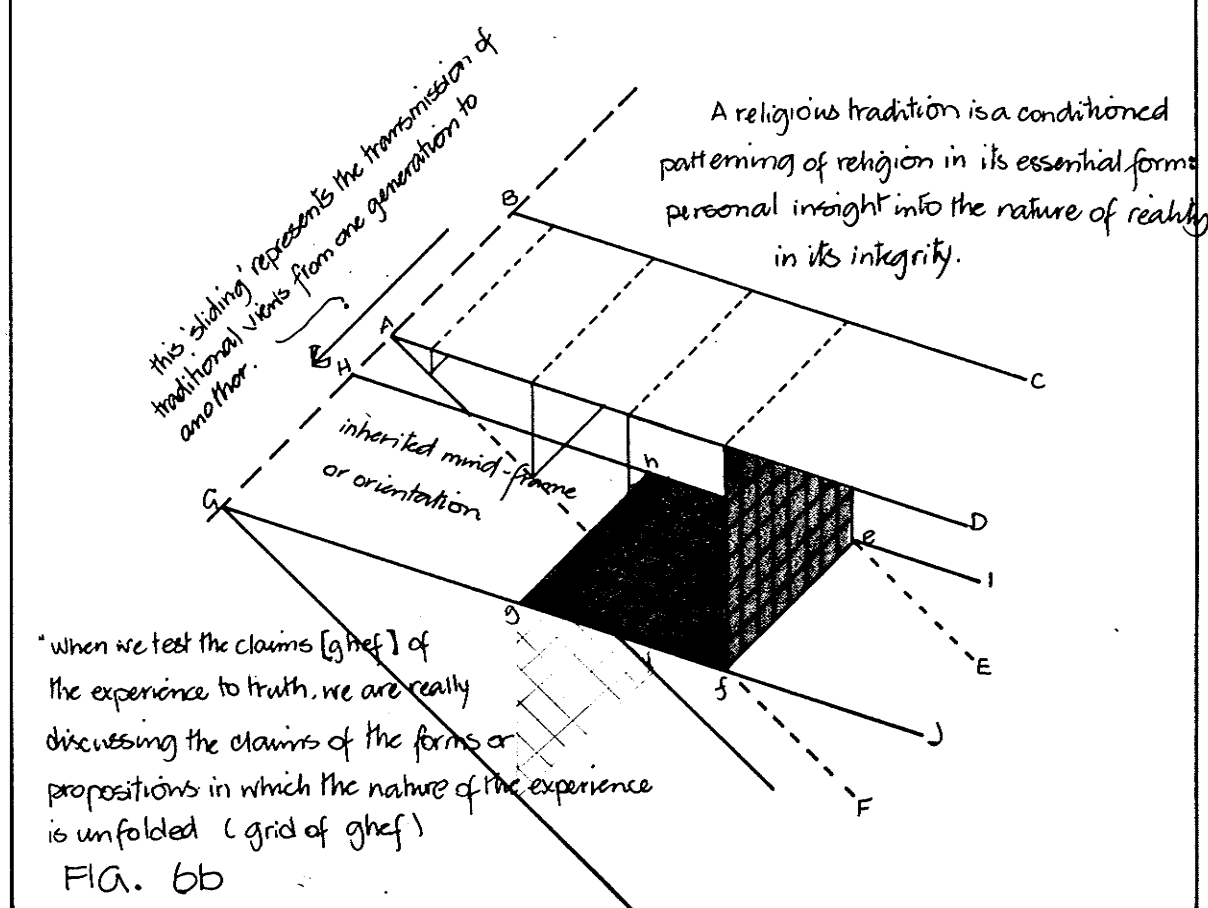 this 'sliding' represents the transmission of
traditional views from one generation to
another.
A religious tradition is a conditioned
patterning of religion in its essential form:
personal insight into the nature of reality
in its integrity.
B
A
H
C
inherited mind-frame
or orientation
h
G
D
e
I
g
f
E
J
F
"when we test the claims [ghef] of
the experience to truth, we are really
discussing the claims of the forms or
propositions in which the nature of the experience
is unfolded (grid of ghef)
FIG. 6b